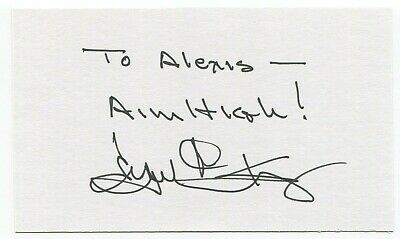 To Alexis —
Aim High!